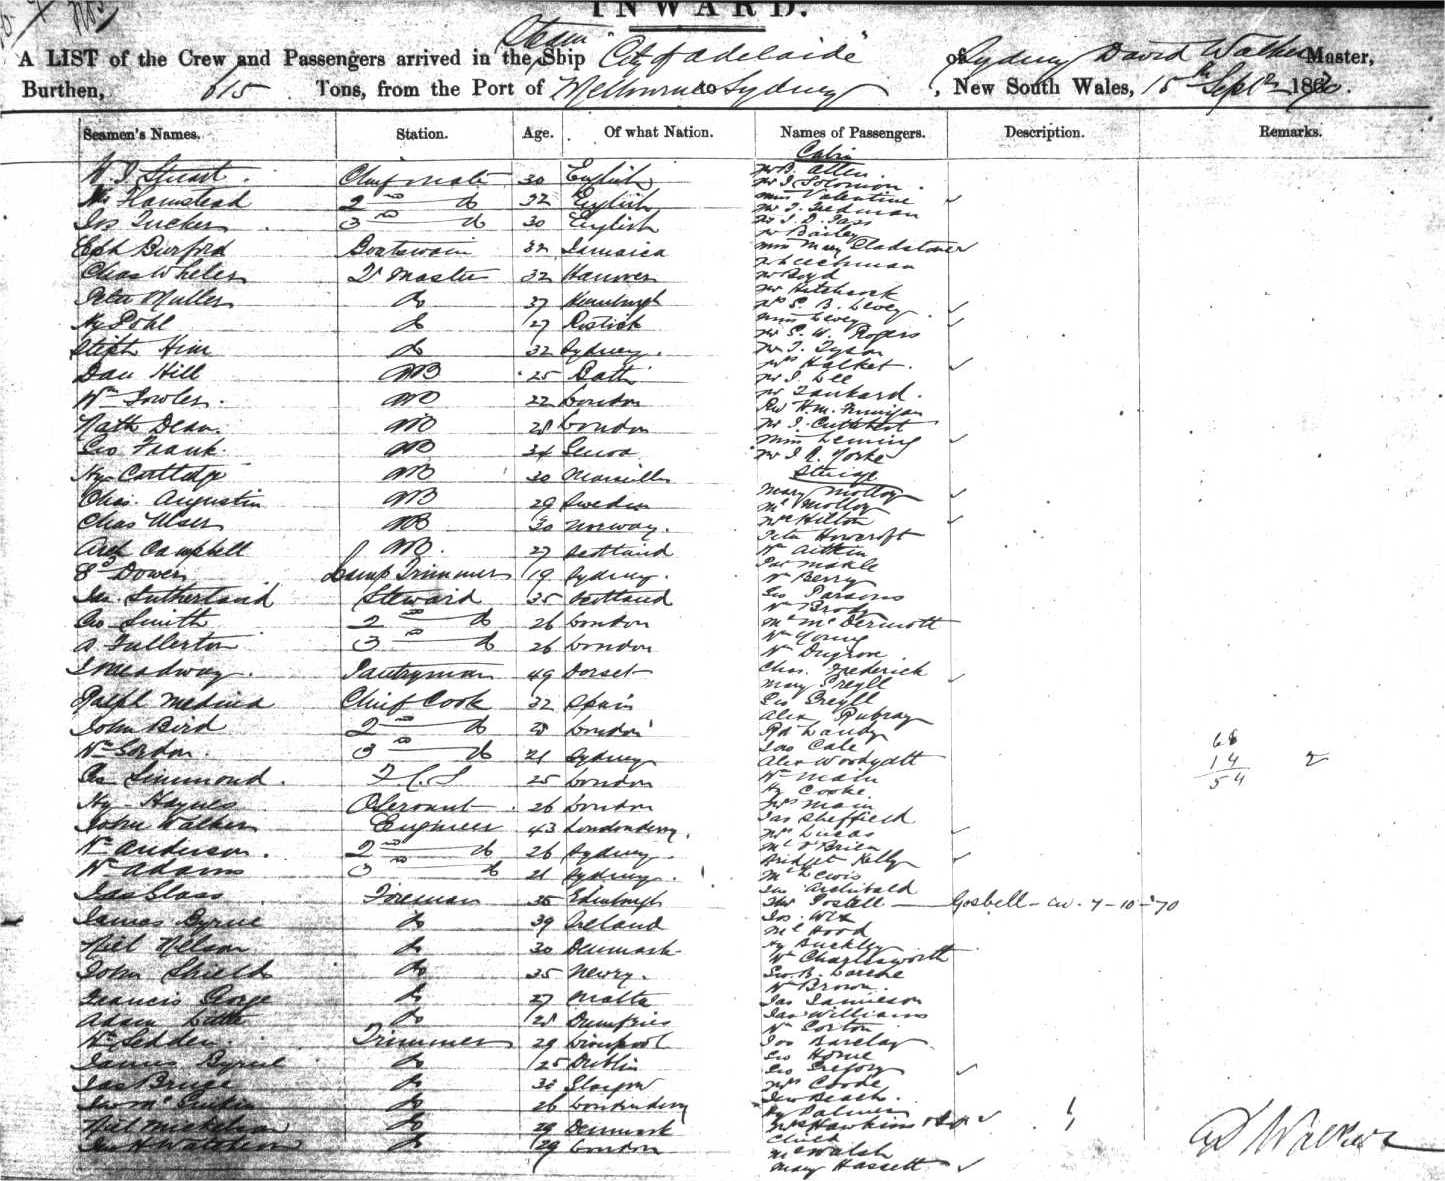 INWARD.
A LIST of the Crew and Passengers arrived in the Steam Ship "City of Adelaide" of Sydney David Walker Master,
Burthen, 615 Tons, from the Port of Melbourne to Sydney, New South Wales, 15th Sept 1870.
Seamen's Names. Station. Age. Of what Nation. Names of Passengers. Description. Remarks.
Cabin
Stuart Chief mate 30 English Mr B. Allen
Mr J Solomon
Hamstead 2nd do 32 English Miss Valentine
Jos Tucker 3rd do 30 English
Mr Bailey
Burford Boatswain 32 Jamaica Miss May Gladstone
Mr Leechman
Chas Wheler Qr Master 32 Hanover Mr Boyd
Mr Hitchcock
Peter Muller do 37 Hamburgh Mr S. B. Levey
Miss Levey
Hy Pohl do 27 Mr S. W. Rogers
Steph Him do 32 Sydney. Mr T. Tyson
Mrs Halket.
Dan Hill AB 25 Bath Mr J. Lee
Wm Fowler. AB 22 London Mr Tankard.
Nath Dean. AB 28 London Mr J. Cuthbert
Miss Leming
Geo Frank. AB 34 Genoa Mr J. R. Yorke
Steerage
Hy Cartledge AB 30 Marseilles
Mary Molloy
Chas. Augustin AB 29 Sweden Mt Molloy
Chas Ulser AB 30 Norway. Mrs Hilton
Peter Howcroft
Arch Campbell AB. 27 Scotland Wm Aitkin
Jas Makle
Dower Lamp Trimmer 19 Sydney. Wm Berry
Jas. Sutherland Steward 35 Scotland Geo Parsons
Wm Brody
Geo Smith 2nd do 26 London Mt McDermott
A Fullerton 3rd do 26 London Wm Young
Wm Dugrow
J Meadway. Pantryman 49 Dorset Chas. Frederick
Mary Greyll
Ralph Medina Chief Cook 32 Spain Geo Greyll
Alex Rubray
John Bird 2nd do 28 London Rd Landy
Jas Cale
Wm Gordon. 3rd do 21 Sydney Alex Woodyatt
68
14 2
54
Simmond. 25 London Wm Main
Hy Cooke
Hy Haynes 26 London Mrs Main
Jas Sheffield
John Walker Engineer 43 Londonderry. Mrs Lucas
Wm Anderson. 2nd do 26 Sydney Mt O'Brien
Bridget Kelly
Wm Adams 3 do 21 Sydney. Mt Lewis
Jno Archibald
Jas Glass Fireman 35 Edinburgh Thos Gosbell — Gosbell - cw. 7-10-'70
James Byrne do 39 Ireland Jos. Wix
Mt Hood
Niel Nelson do 30 Denmark Hy Buckley
Wm Charlesworth
John Shields do 35 Newry. Geo B. Larche
Wm Brown.
Francis George do 27 Malta Jas Jamieson
Jas Williams
Adam Little do 28 Dumfries Wm Corton
Wm Sedden. Trimmer 29 Liverpool Jos Barclay
Geo Horne
James Byrne do 25 Dublin Geo Gregory
Mrs Coode
Jas Bruce do 30 Glasgow Jno Beach.
do 26 Londonderry Hy Palmer
Niel Mickelson do 29 Denmark Mrs Hawkins
Child
do 29 London Mt Walsh
Mary Hassett
D Walker